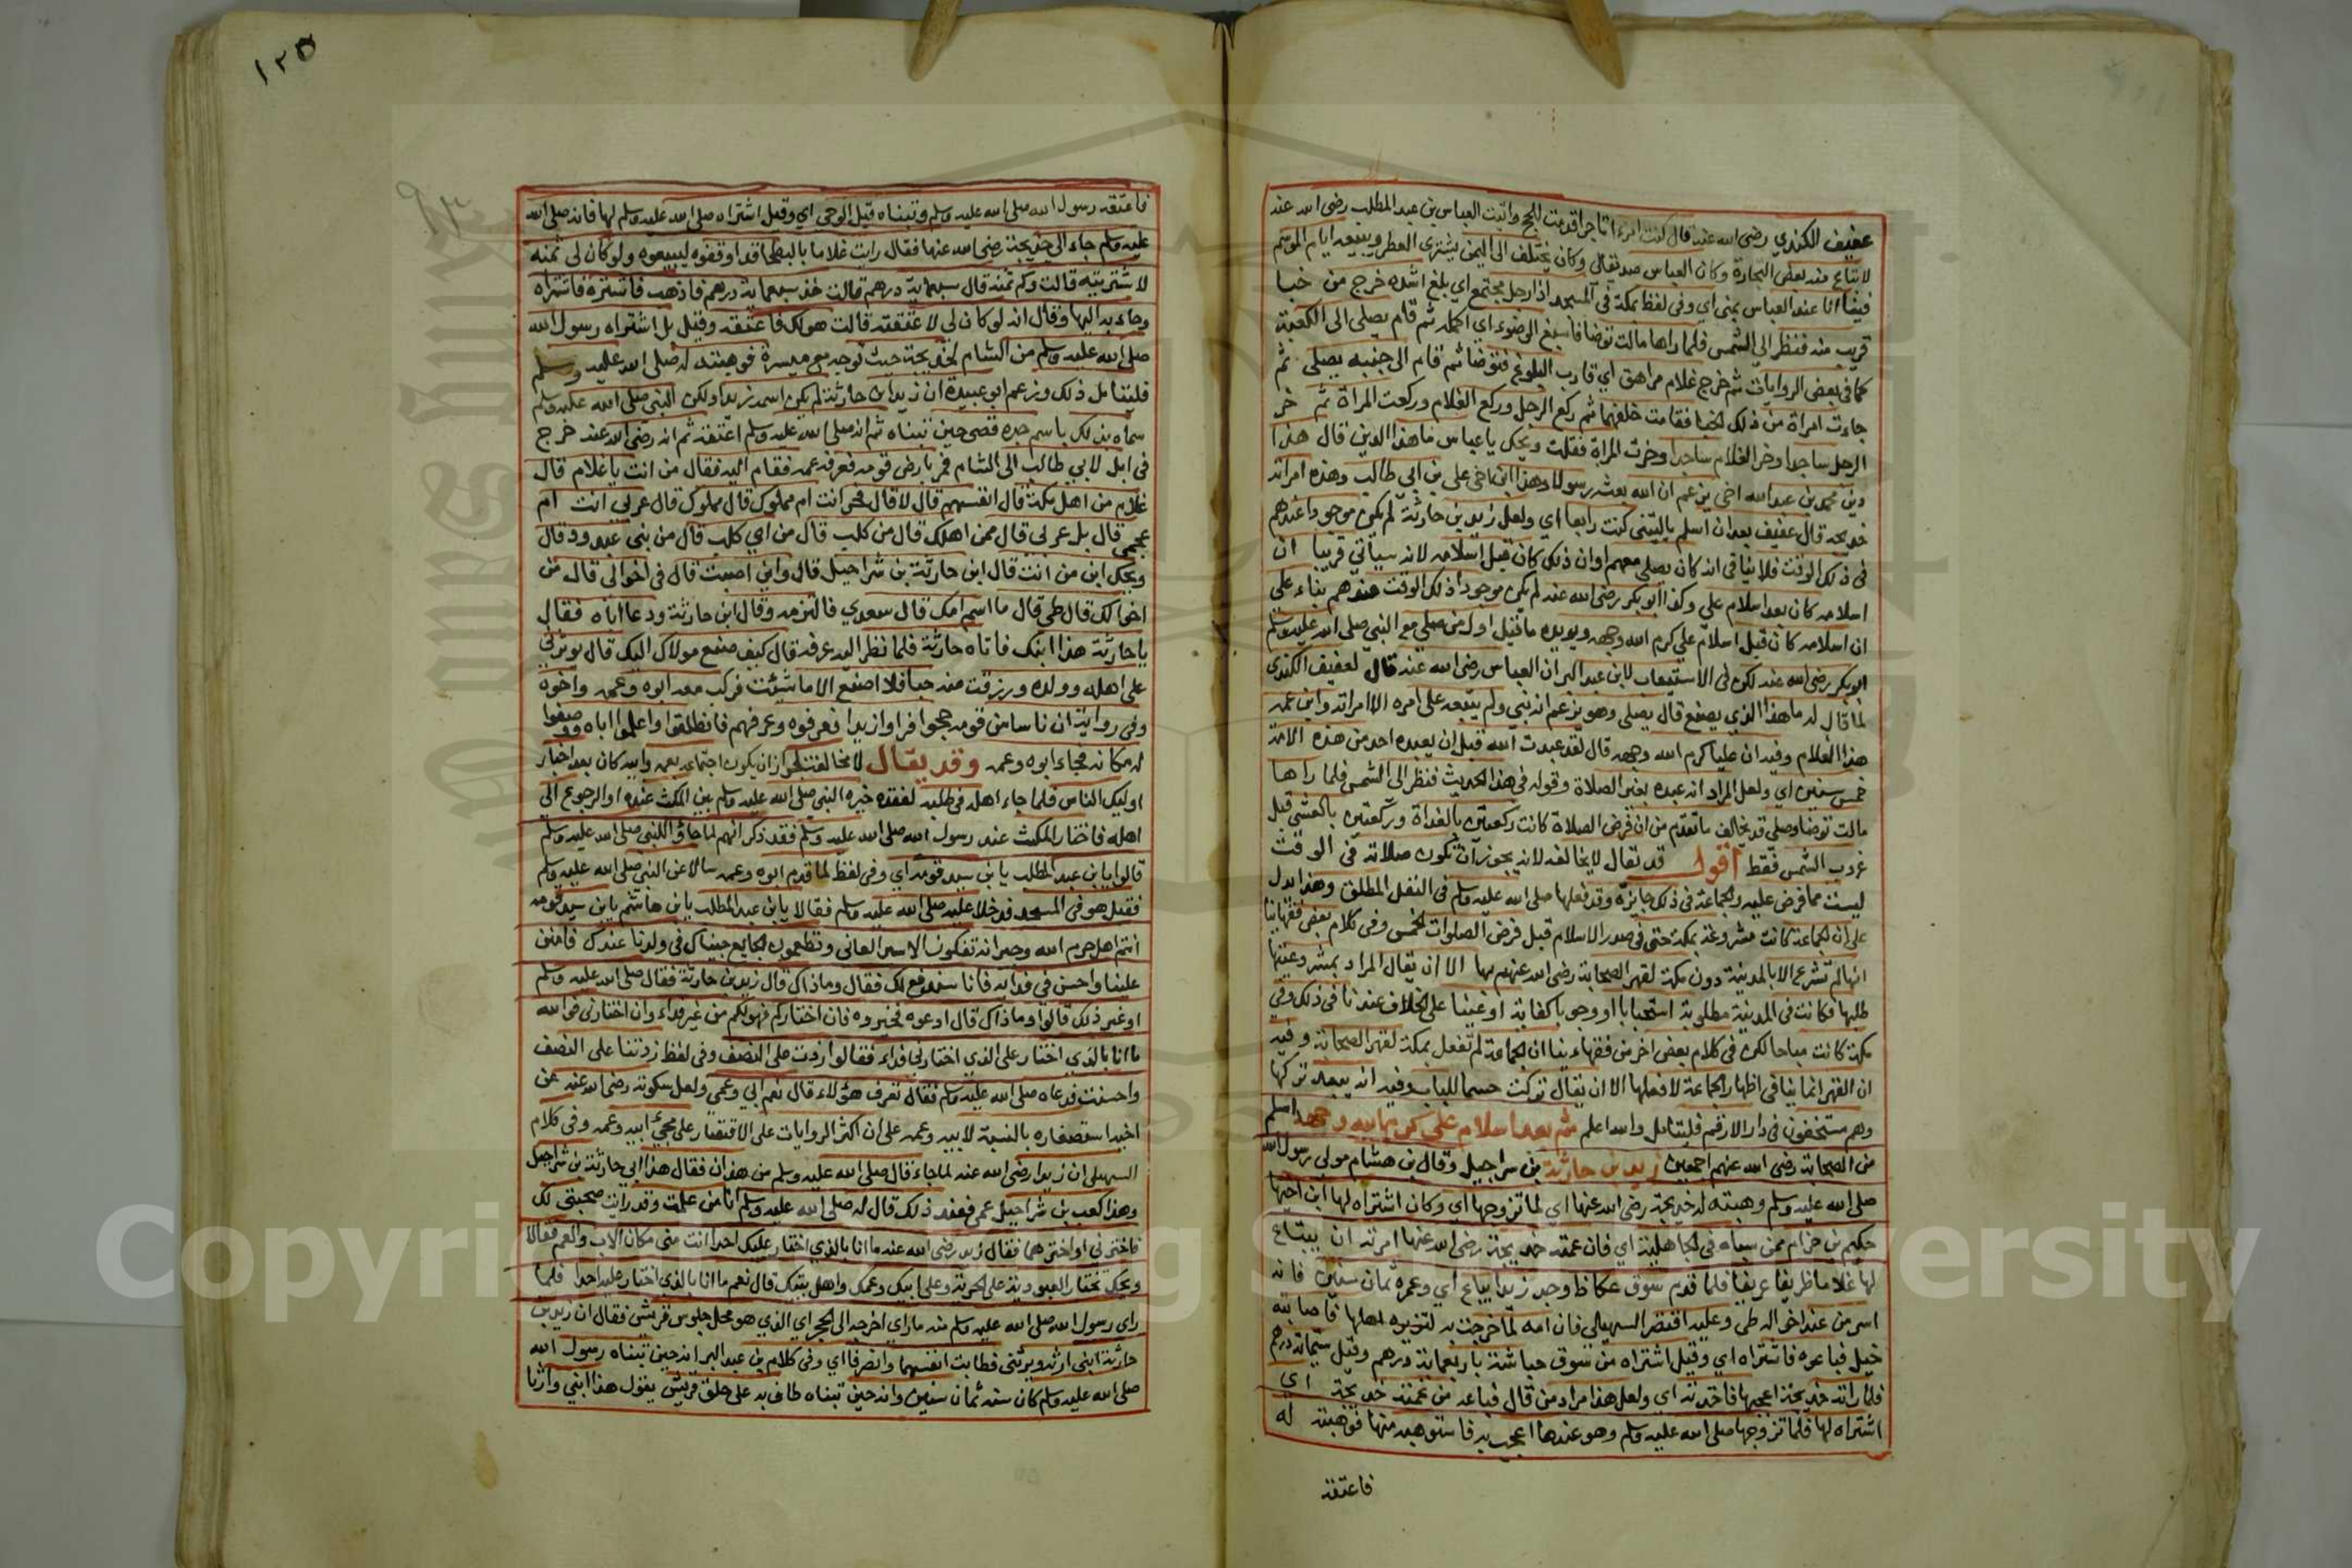 عفيف الكندي رضي الله عنه قال كنت امرءا تاجرا قدمت للحج واتيت العباس بن عبد المطلب رضي الله عنه
لابتاع منه بعض التجارة وكان العباس صديقالي وكان يختلف الى اليمن يشتري العطر ويبيعه ايام الموسم
فبينما انا عند العباس بمنى اي وفي لفظ بمكة في المسجد اذا رجل مجتمع اي بلغ اشده خرج من خبا
قريب منه فنظر الى الشمس فلما راها مالت توضا فاسبغ الوضوء اي اكمله ثم قام يصلي الى الكعبة
كما في بعض الروايات ثم خرج غلام مراهق اي قارب البلوغ فتوضا ثم قام الى جنبه يصلي ثم
جاءت امراة من ذلك الخبا فقامت خلفهما ثم ركع الرجل وركع الغلام وركعت المراة ثم خر
الرجل ساجدا وخر الغلام ساجدا وخرت المراة فقلت ويحك يا عباس ما هذا الدين قال هذا
دين محمد بن عبد الله اخي يزعم ان الله بعثه رسولا وهذا ابن اخي علي بن ابي طالب وهذه امراته
خديجة قال عفيف بعد ان اسلم ياليتني كنت رابعا اي ولعل زيد بن حارثة لم يكن موجودا عندهم
في ذلك الوقت فلا ينافي انه كان يصلي معهم او ان ذلك كان قبل اسلامه لانه سياتي قريبا ان
اسلامه كان بعد اسلام علي وكذا ابو بكر رضي الله عنه لم يكن موجودا ذلك الوقت عندهم بناء على
ان اسلامه كان قبل اسلام علي كرم الله وجهه ويويده ما قيل اول من صلى مع النبي صلى الله عليه وسلم
ابو بكر رضي الله عنه لكن في الاستيعاب لابن عبد البر ان العباس رضي الله عنه قال لعفيف الكندي
لما قال له ما هذا الذي يصنع قال يصلي وهو يزعم انه نبي ولم يتبعه على امره الا امراته وابن عمه
هذا الغلام وفيه ان عليا كرم الله وجهه قال لقد عبدت الله قبل ان يعبده احد من هذه الامة
خمس سنين اي ولعل المراد انه عبده بغير الصلاة وقوله في هذا الحديث فنظر الى الشمس فلما راها
مالت توضا وصلى قد يخالف ما تقدم من ان فرض الصلاة كانت ركعتين بالغداة وركعتين بالعشي قبل
غروب الشمس فقط اقول قد يقال لا يخالفه لانه يجوز ان تكون صلاته في الوقت
ليست مما فرض عليه والجماعة في ذلك جائزة وقد فعلها صلى الله عليه وسلم في النفل المطلق وهذا يدل
على ان الجماعة كانت مشروعة بمكة حتى في صدر الاسلام قبل فرض الصلوات الخمس وفي كلام بعض فقهائنا
انها لم تشرع الا بالمدينة دون مكة لقهر الصحابة رضي الله عنهم بها الا ان يقال المراد بمشروعيتها
طلبها فكانت في المدينة مطلوبة استحبابا او وجوبا كفاية او عينا على الخلاف عندنا في ذلك وفي
مكة كانت مباحة لكن في كلام بعض اخر من فقهاءينا ان الجماعة لم تفعل بمكة لقهر الصحابة وفيه
ان القهر انما ينافي اظهار الجماعة لا فعلها الا ان يقال تركت حسما للباب وفيه انه يبعد تركها
وهم مستخفون في دار الارقم فليتامل والله اعلم ثم بعد اسلام علي كرم الله وجهه اسلم
من الصحابة رضي الله عنهم اجمعين زيد بن حارثة بن شراحيل وقال بن هشام مولى رسول الله
صلى الله عليه وسلم وهبته له خديجة رضي الله عنها اي لما تزوجها اي وكان اشتراه لها ابن اخيها
حكيم بن حزام ممن سباه في الجاهلية اي فان عمته خديجة رضي الله عنها امرته ان يبتاع
لها غلاما ظريفا عربيا فلما قدم سوق عكاظ وجد زيدا يباع اي وعمره ثمان سنين فانه
اسر من عند اخواله طي وعليه اقتصر السهيلي فان امه لما خرجت به لتزيره اهلها فاصابته
خيل فباعوه فاشتراه اي وقيل اشتراه من سوق حباشة باربعماية درهم وقيل ستماية درهم
فلما راته خديجة اعجبها فاخذته اي ولعل هذا مراد من قال فباعه من عمته خديجة اي
اشتراه لها فلما تزوجها صلى الله عليه وسلم وهو عندها اعجب به فاستوهبه منها فوهبته له
فاعتقه
١٢٥
فاعتقه رسول الله صلى الله عليه وسلم وتبناه قبل الوحي اي وقيل اشتراه صلى الله عليه وسلم لها فانه صلى الله
عليه وسلم جاء الى خديجة رضي الله عنها فقال رايت غلاما بالبطحا قد اوقفوه ليبيعوه ولو كان لي ثمنه
لاشتريته قالت وكم ثمنه قال سبعماية درهم قالت خذ سبعماية درهم فاذهب فاشتره فاشتراه
وجاء به اليها وقال انه لو كان لي لاعتقته قالت هو لك فاعتقه وقيل بل اشتراه رسول الله
صلى الله عليه وسلم من الشام لخديجة حيث توجه مع ميسرة فوهبته له صلى الله عليه وسلم
فليتامل ذلك وزعم ابو عبيدة ان زيد ابن حارثة لم يكن اسمه زيدا ولكن النبي صلى الله عليه وسلم
سماه بذلك باسم جده قصي حين تبناه ثم انه صلى الله عليه وسلم اعتقه ثم انه رضي الله عنه خرج
في ابل لابي طالب الى الشام فمر بارض قومه فعرفه عمه فقام اليه فقال من انت يا غلام قال
غلام من اهل مكة قال انفسهم قال لا قال فحر انت ام مملوك قال مملوك قال عربي انت ام
عجمي قال بل عربي قال ممن اهلك قال من كلب قال من اي كلب قال من بني عبد ود قال
ويحك ابن من انت قال ابن حارثة بن شراحيل قال واين اصبت قال في اخوالي قال من
اخوالك قال طي قال ما اسم امك قال سعدي فالتزمه وقال ابن حارثة ودعا اباه فقال
يا حارثة هذا ابنك فاتاه حارثة فلما نظر اليه عرفه قال كيف صنع مولاك اليك قال يوثرني
على اهله وولده ورزقت منه حبا فلا اصنع الا ما شئت فركب معه ابوه وعمه واخوه
وفي رواية ان ناسا من قومه حجوا فراوا زيدا فعرفوه وعرفهم فانطلقوا واعلموا اباه ووصفوا
له مكانه فجاء ابوه وعمه وقد يقال لا مخالفة لجواز ان يكون اجتماعه بعمه وابيه كان بعد اخبار
اوليك الناس فلما جاء اهله في طلبه لفقده خيره النبي صلى الله عليه وسلم بين المكث عنده او الرجوع الى
اهله فاختار المكث عند رسول الله صلى الله عليه وسلم فقد ذكر انهم لما جاؤ للنبي صلى الله عليه وسلم
قالوا يا بن عبد المطلب يا بن سيد قومه اي وفي لفظ لما قدم ابوه وعمه سالا عن النبي صلى الله عليه وسلم
فقيل هو في المسجد فدخلا عليه صلى الله عليه وسلم فقالا يا بن عبد المطلب يا بن هاشم يا بن سيد قومه
انتم اهل حرم الله وجيرانه تفكون الاسير العاني وتطعمون الجايع جيناك في ولدنا عندك فامنن
علينا واحسن في فدايه فانا سندفع لك فقال وما ذاك قال زيد بن حارثة فقال صلى الله عليه وسلم
او غير ذلك قالوا وما ذاك قال ادعوه فخيروه فان اختاركم فهو لكم من غير فداء وان اختارني فوالله
ما انا بالذي اختار على الذي اختارني فداء فقالوا زدت على النصف وفي لفظ زدتنا على النصف
واحسنت فدعاه صلى الله عليه وسلم فقال تعرف هؤلاء قال نعم ابي وعمي ولعل سكوته رضي الله عنه عن
اخيه استصغاره بالنسبة لابيه وعمه على ان اكثر الروايات على الاقتصار على مجيء ابيه وعمه وفي كلام
السهيلي ان زيدا رضي الله عنه لما جاء قال صلى الله عليه وسلم من هذان فقال هذا ابي حارثة بن شراحيل
وهذا كعب بن شراحيل عمي فعند ذلك قال له صلى الله عليه وسلم انا من علمت وقد رايت صحبتي لك
فاخترني او اخترهما فقال زيد رضي الله عنه ما انا بالذي اختار عليك احدا انت مني مكان الاب والعم فقالا
ويحك تختار العبودية على الحرية وعلى ابيك وعمك واهل بيتك قال نعم ما انا بالذي اختار عليه احدا فلما
راى رسول الله صلى الله عليه وسلم منه ما راى اخرجه الى الحجر اي الذي هو محل جلوس قريش فقال ان زيد بن
حارثة ابني ارثه ويرثني فطابت انفسهما وانصرفا اي وفي كلام بن عبد البر انه حين تبناه رسول الله
صلى الله عليه وسلم كان سنه ثمان سنين وانه حين تبناه طاف به على حلق قريش يقول هذا ابني وارثا
Copyright © King Saud University